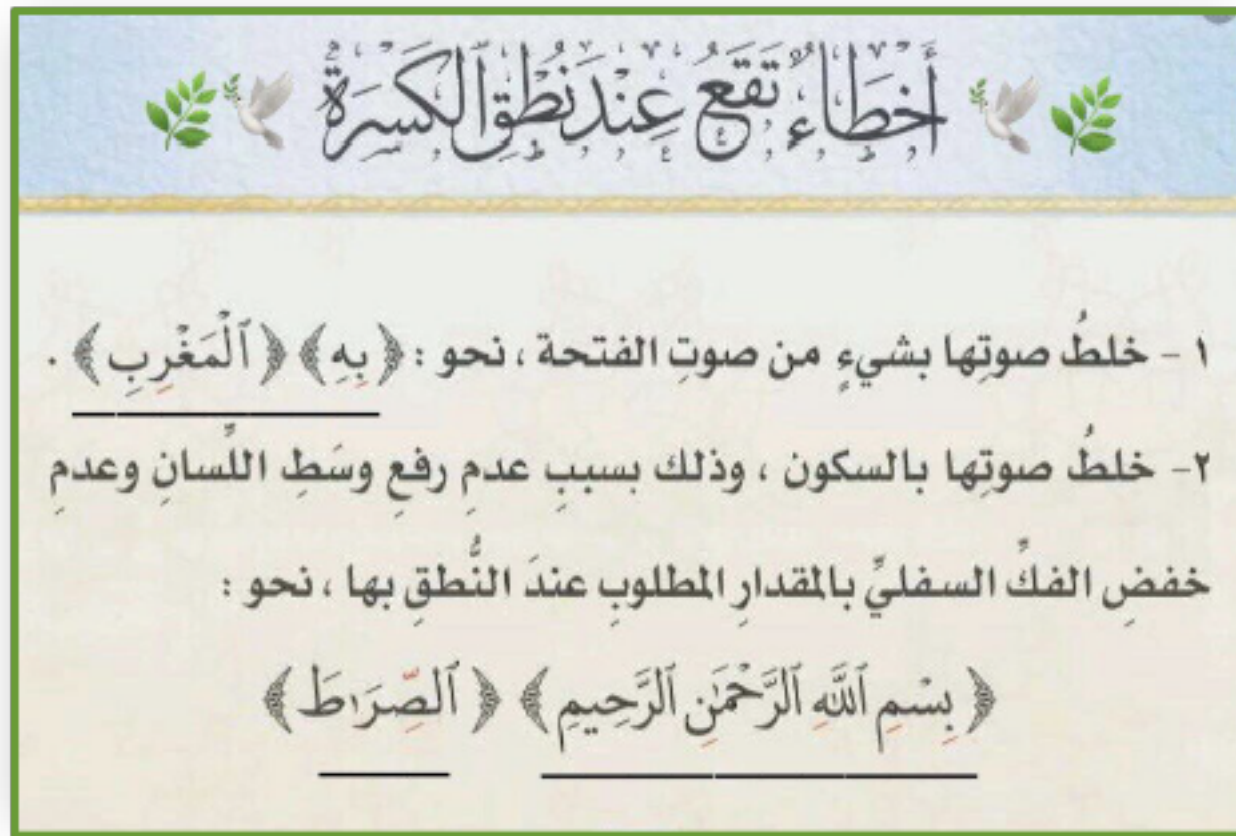 أَخْطَاءٌ تَقَعُ عِنْدَ نُطْقِ ٱلْكَسْرَةِ
١ - خلطُ صوتِها بشيءٍ من صوتِ الفتحة ، نحو : ﴿ بِهِ ﴾ ﴿ ٱلْمَغْرِبِ ﴾ .
٢- خلطُ صوتِها بالسكون ، وذلك بسببِ عدمِ رفعِ وسَطِ اللِّسانِ وعدمِ
خفضِ الفكِّ السفليِّ بالمقدارِ المطلوبِ عندَ النُّطقِ بها ، نحو :
﴿ بِسْمِ ٱللَّهِ ٱلرَّحْمَٰنِ ٱلرَّحِيمِ ﴾ ﴿ ٱلصِّرَٰطَ ﴾